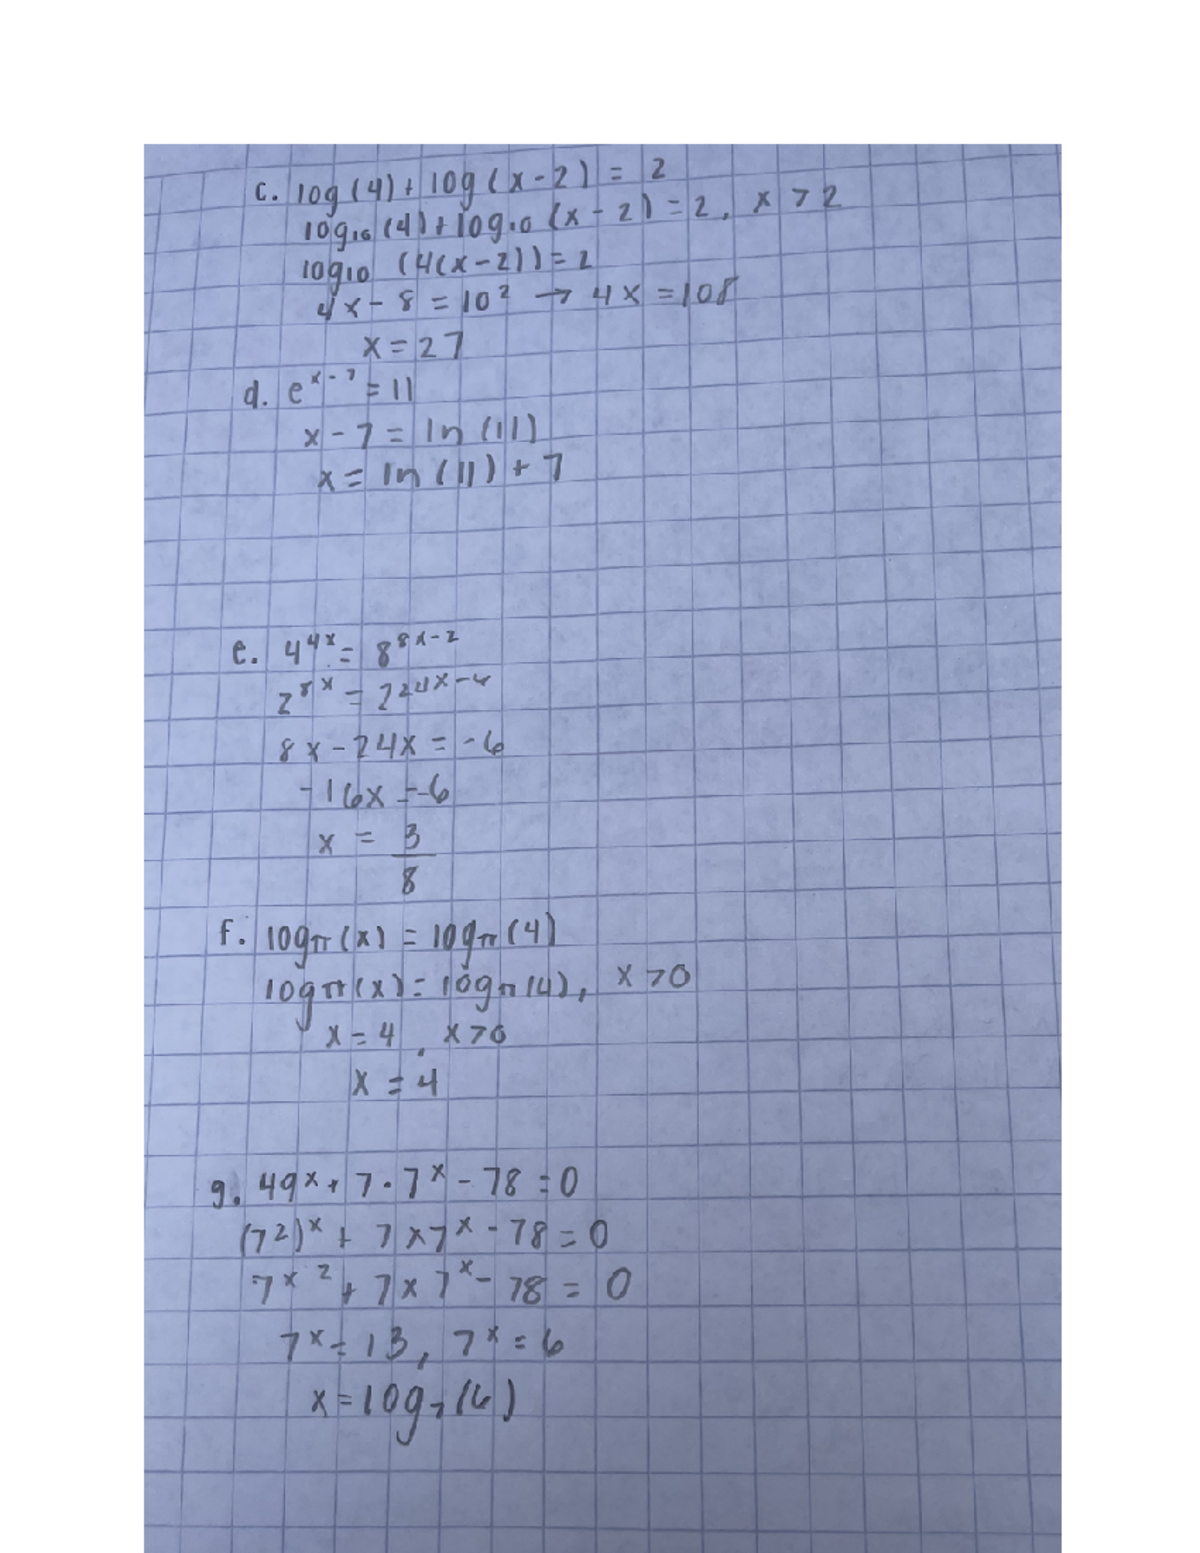 c. log (4) + log (x-2) = 2
log₁₀ (4) + log₁₀ (x-2) = 2, x > 2
log₁₀ (4(x-2)) = 2
4x - 8 = 10² → 4x = 108
x = 27
d. eˣ⁻⁷ = 11
x - 7 = ln (11)
x = ln (11) + 7
e. 4⁴ˣ = 8⁸ˣ⁻²
2⁸ˣ = 2²⁴ˣ⁻⁶
8x - 24x = -6
-16x = -6
x = 3/8
f. logπ (x) = logπ (4)
logπ (x) = logπ (4), x > 0
x = 4, x > 0
x = 4
g. 49ˣ + 7 · 7ˣ - 78 = 0
(7²)ˣ + 7 × 7ˣ - 78 = 0
7ˣ ² + 7 × 7ˣ - 78 = 0
7ˣ = 13, 7ˣ = 6
x = log₇ (6)